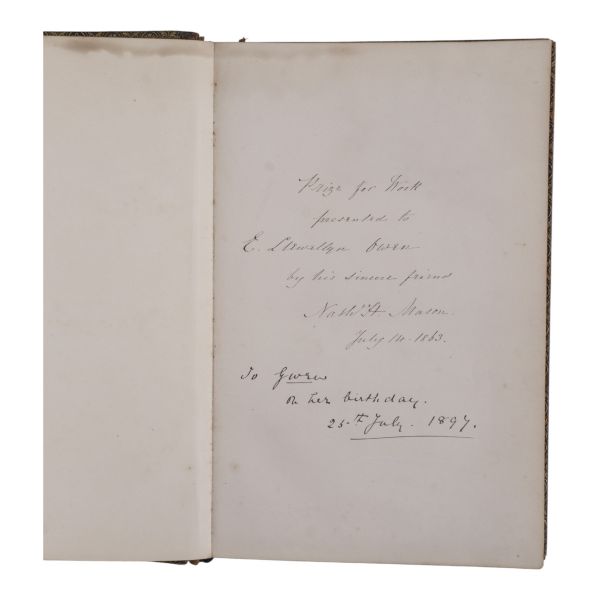 Prize for Work
presented to
E. Llewellyn Owen
by his sincere friend
Nathl. H. Mason.
July 14. 1863.
To Gwen
on her birthday.
25th July. 1897.